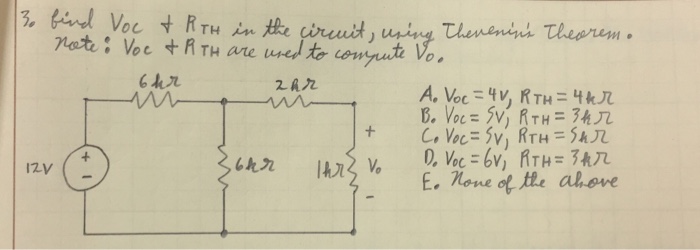 3. Find Voc & RTH in the circuit, using Thevenin's Theorem.
Note: Voc & RTH are used to compute Vo.
6kΩ
2kΩ
A. Voc = 4V, RTH = 4kΩ
B. Voc = 5V, RTH = 3kΩ
C. Voc = 5V, RTH = 5kΩ
D. Voc = 6V, RTH = 3kΩ
E. None of the above
12V
+
-
6kΩ
1kΩ
+
Vo
-